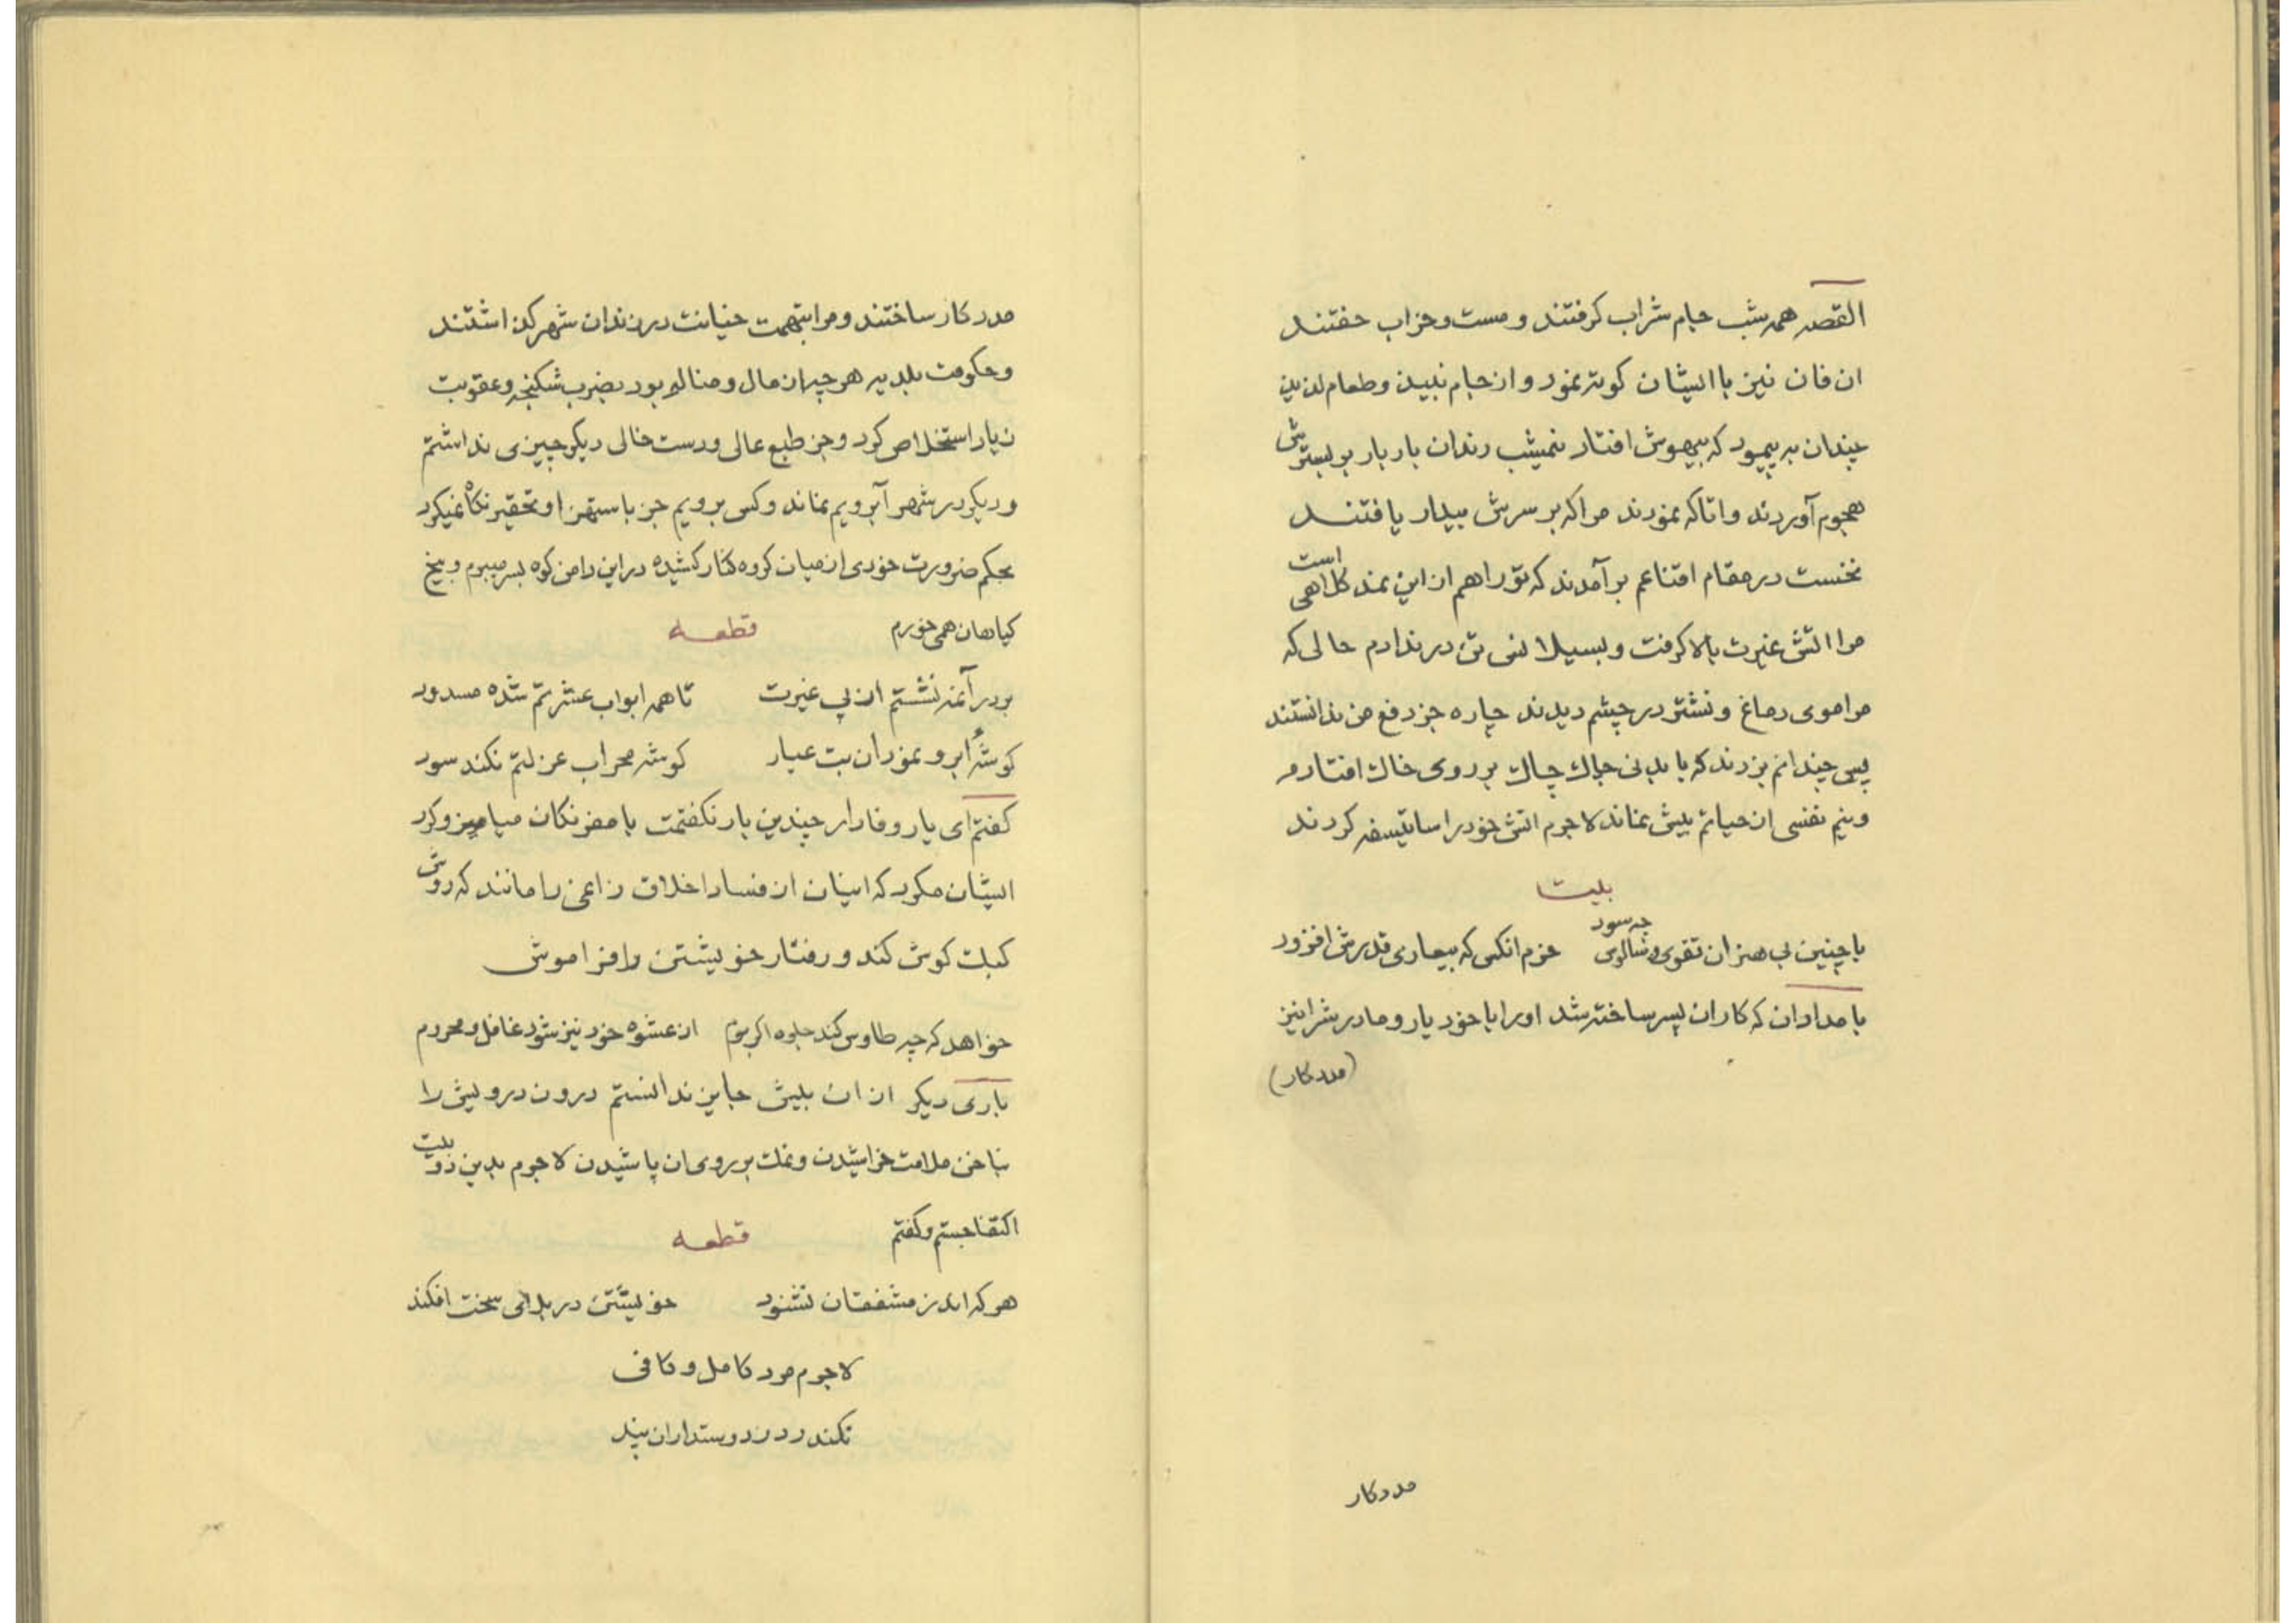 القصه همه شب جام شراب کرفتند و مست و خراب خفتند
ان فان نیز با ایشان کوته نمود و از جام نبیذ و طعام لذیذ
چندان به پیمود که بیهوش افتاد نیمشب رندان بار بار بر بسترش
هجوم آوردند و اتاکه نمودند مرا که بر سرش بیدار یافتند
نخست در مقام اقناعم بر آمدند که تو را هم از این نمد کلاهی است
مرا اتش غیرت بالا کرفت و بسیلا نس تن در ندادم حالی که
مرا موی دماغ و نشتر در چشم دیدند چاره جز دفع من ندانستند
پس چندانم بزدند که با بدنی چاک چاک بر روی خاک افتادم
و نیم نفسی از حیاتم بیش نماند لاجرم اتش خود را سا تیسفه کردند
بیت
با چنین بی هنران تقوی و سالوس چه سود خرم انکس که بیعاری قدرش افزود
بامدادان که کار ان پسر ساخته شد او را با خود یار و مادرش را نیز
(مددکار)
مددکار
مددکار ساختند و مرا بتهمت خیانت در زندان شهر کذاشتند
و حکومت بلدیه هر چه از مال و منالم بود بضرب شکنجه و عقوبت
زیاد استخلاص کرد و جز طبع عالی و دست خالی دیکر چیزی نداشتم
و دیکر در شهر آبرویم نماند و کس برویم جز باستهزا و تحقیر نکاه نمیکرد
بحکم ضرورت خودی از میان کروه کنار کشیده در این دامن کوه بسر میبرم و بیخ
کیاهان همی خورم قطعه
بر در آنمه نشستم از پی غیرت تا همه ابواب عشرتم شده مسدود
کوشهٔ ابرو نمود آن بت عیار کوشه محراب عزلتم نکند سود
کفتم ای یار وفادار چندین بار نکفتمت با مفرنکان میامیز و کرد
ایشان مکرد که اینان از فساد اخلاق زاغی را مانند که روش
کبک کوش کند و رفتار خویشتن را فراموش
خواهد که چه طاوس کند جلوه اکر بوم از عشوه خود نیز شود غافل و محروم
باری دیکر از ان بیش جایز ندانستم درون درویش را
بناخن ملامت خراشیدن و نمک بر روی ان پاشیدن لاجرم بدین دو بیت
اکتفا جستم و کفتم قطعه
هر که اندرز مشفقان نشنود خویشتن در بلای سخت افکند
لاجرم مرد کامل و کافی
نکند رد ز دوستداران پند